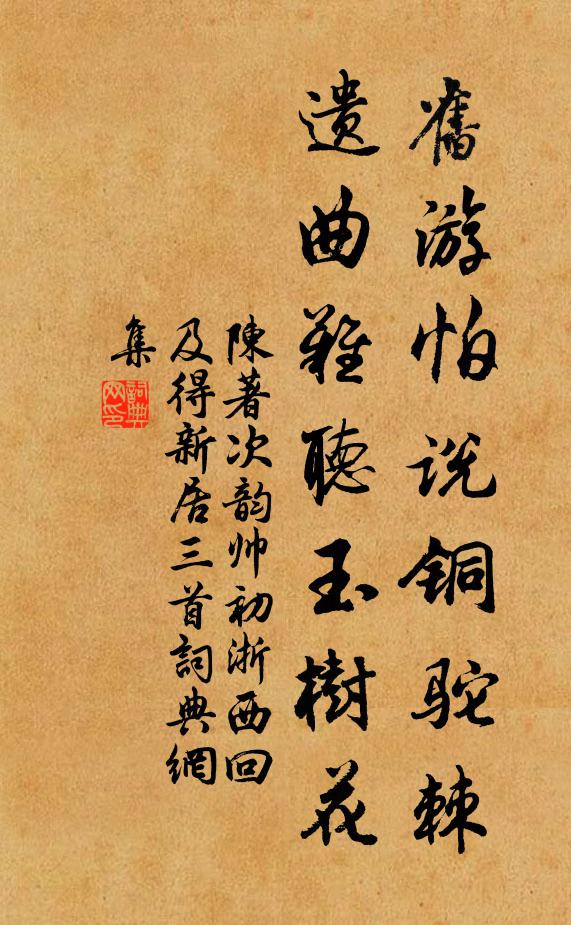 舊游怕说铜駝棘
遗曲难聽玉樹花
陳著次韵帅初浙西回
及得新居三首詞典網
集
詞典
网印